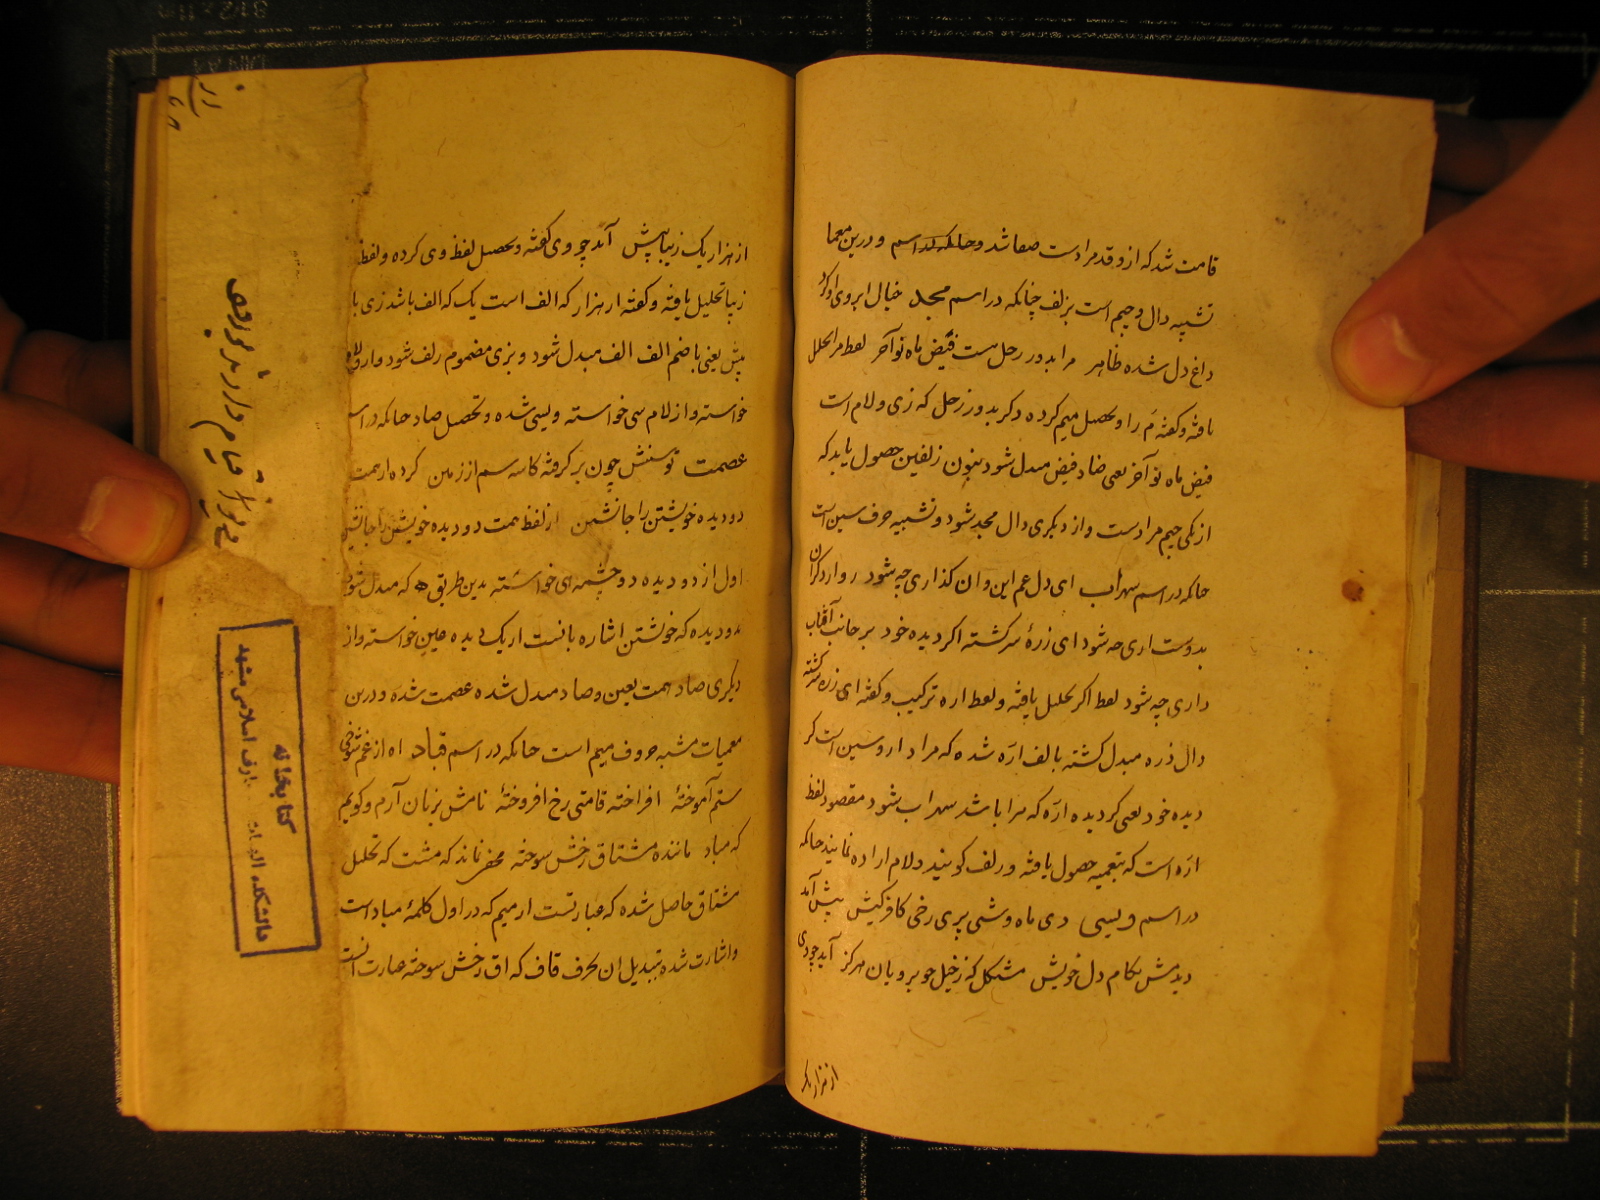 قامت شد که ازو قد مرادست صفا شد و حاملکه در اسم و درین معما
تشبیه دال و جیم است بزلف چنانکه در اسم مجد خیال ابروی او کرد
داغ دل شده ظاهر مرا بدور رحل مست فیض ماه نو آخر لفظ مرا تحلیل
یافته و کفته مَ را و تحصیل میم کرده دکر بدور زحل که زی و لام است
فیض ماه نو آخر یعنی ضاد فیض مبدل شود بنون زلفین حصول یابد که
از یکی جیم مرادست و از دیکری دال مجد شود و تشبیه حرف سین است
حاملکه در اسم سهراب ای دل غم این و ان کذاری چه شود رو ارد کران
بدوست اری چه شود ای زرهٔ سرکشته اکر دیده خود بر جانب آفتاب
داری چه شود لفظ اکر تحلیل یافته و لفظ اره ترکیب و کفته ای زره سرکشته
دال ذره مبدل کشته بالف ارّه شده که مراد ازو سین است کر
دیده خود یعنی کر دیده ارّه که سرا باشد سهراب شود مقصود لفظ
ارّه است که بتعمیه حصول یافته و زلف کویند و لام اراده نمایند حاملکه
در اسم ویسی دی ماه وشی پری رخی کافر کیش پیش آمد
دیدمش بکام دل خویش مشکل که ز خیل خوبرویان هرکز آید چو وی
از هزار یک
از هزار یک زیبا پیش آید چو وی کفته و تحصیل لفظ وی کرده و لفظ
زیبا تحلیل یافته و کفته از هزار که الف است یک که الف باشد زی با
پیش یعنی با ضم الف الف مبدل شود و بزی مضموم زلف شود و از و لام
خواسته و از لام سی خواسته ویسی شده و تحصیل صاد حاملکه در اسم
عصمت توسنش چون بر کرفته کاسه سم از زمین کرده از همت
دو دیده خویشتن را جانشین از لفظ همت دو دیده خویشتن را جانشین
اول از دو دیده دو چشمه ای خواسته بدین طریق ه که مبدل شود
بدو دیده که خوشتن اشاره بانست از یک دیده عین خواسته و از
دیکری صاد همت بعین و صاد مبدل شده عصمت شده و درین
معمیات مشبه حروف میم است حاملکه در اسم قباد اه از غم شوخی
ستم آموختهٔ افراخته قامتی رخ افروختهٔ نامش بزبان آرم و کویم
که مباد ماننده مشتاق رخش سوخته مخفی نماند که مشت که تحلیل
مشتاق حاصل شده که عبارتست از میم که در اول کلمهٔ مباد است
و اشارت شده تبدیل ان بحرف قاف که اق رخش سوخته عبارت انست
کتابخانه
دانشکده الهیات و معارف اسلامی مشهد